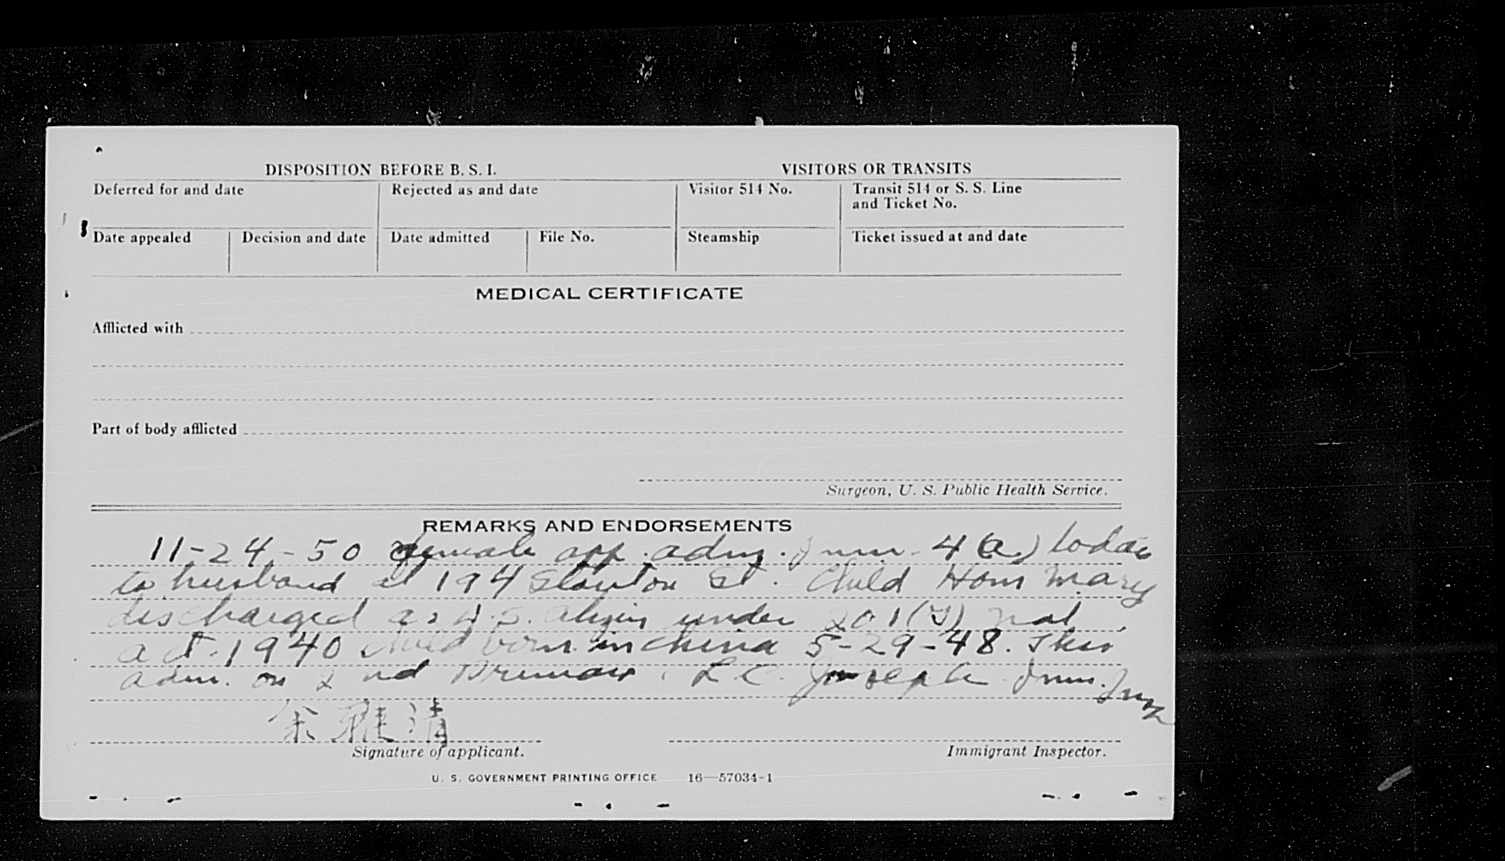 DISPOSITION BEFORE B. S. I.
VISITORS OR TRANSITS
Deferred for and date
Rejected as and date
Visitor 514 No.
Transit 514 or S. S. Line
and Ticket No.
Date appealed
Decision and date
Date admitted
File No.
Steamship
Ticket issued at and date
MEDICAL CERTIFICATE
Afflicted with
Part of body afflicted
Surgeon, U. S. Public Health Service.
REMARKS AND ENDORSEMENTS
11-24-50 female app. adm. Imm. 4(a) today
to husband at 194 St. Child Hom Mary
discharged as U.S. under 201(g) Nat.
act. 1940 child born in china 5-29-48. This
adm. on 2nd L.C. Joseph Imm. Insp
余雅清
Signature of applicant.
Immigrant Inspector.
U. S. GOVERNMENT PRINTING OFFICE 16—57034-1